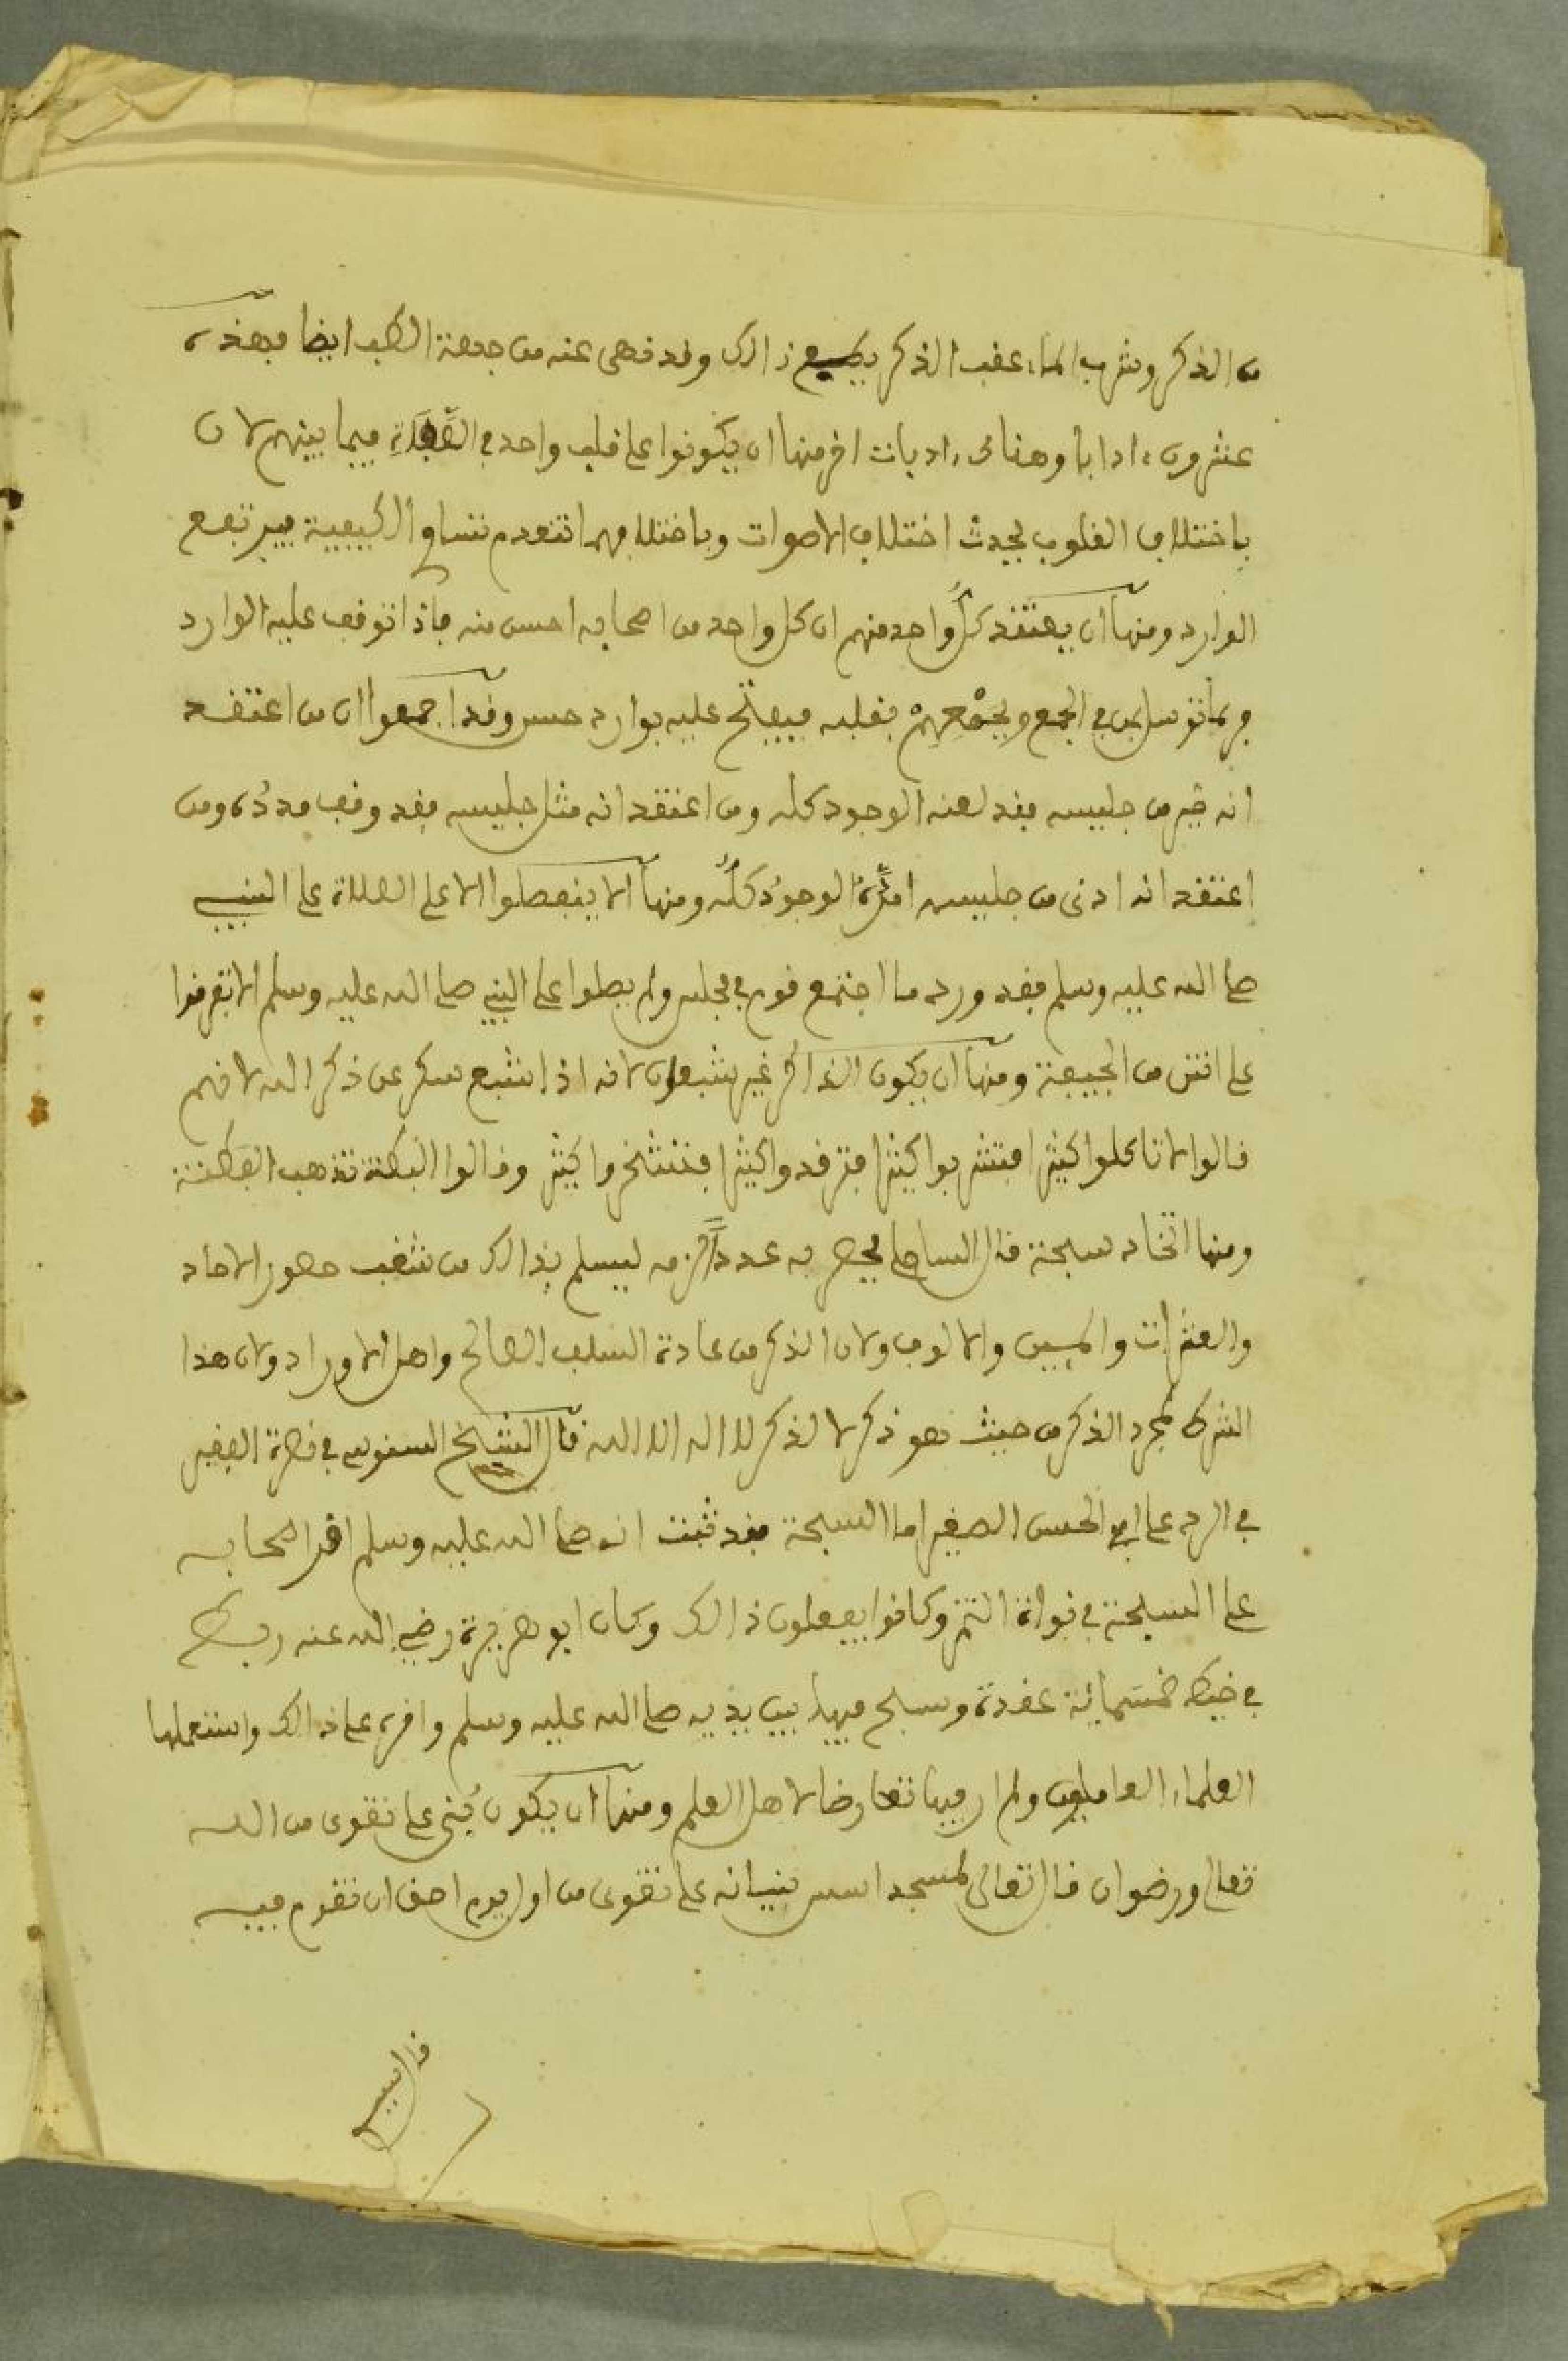 من الذكر وشرب الماء عقب الذكر يطفيء ذالك وقد نهى عنه من جهة الطب ايضا فهذه
عشرون ادابا وهنا اخر منها ان يكونوا على قلب واحد في فيما بينهم لان
باختلاف القلوب يحدث اختلاف الاصوات وباختلافها تنعدم تساوي الكيفية فيرتفع
الوارد ومنها ان يعتقد كل واحد منهم ان كل واحد من اصحابه احسن منه فاذا توقف عليه الوارد
توسل بمن في الجمع وبجمعهم بقلبه فيفتح عليه بوارد حسن وقد اجمعوا ان من اعتقد
انه خير من جليسه فقد لعنه الوجود كله ومن اعتقد انه مثل جليسه فقد وقف مدده ومن
اعتقد انه ادنى من جليسه امده الوجود كله ومنها الا ينفصلوا الا على الصلاة على النبي
صلى الله عليه وسلم فقد ورد ما اجتمع قوم في مجلس ولم يصلوا على النبي صلى الله عليه وسلم الا تفرقوا
على انتن من الجيفة ومنها ان يكون الذاكر غير شبعان لانه اذا شبع سكر عن ذكر الله لانهم
قالوا لا تاكلوا كثيرا فتشربوا كثيرا فترقدوا كثيرا وقالوا البطنة تذهب الفطنة
ومنها اتخاد سبحة قال الساحلي يحصر به عدد ليسلم بذالك من شغب حصور الاحاد
والعشرات والميين والالوف ولان الذكر من عادة السلف الصالح واهل الاوراد ولان هذا
الشرط لمجرد الذكر من حيث هو ذكر لا لذكر لا اله الا الله قال الشيخ السنوسي في نصرة الفقير
في الرد على ابي الحسن الصغير اما السبحة فقد ثبت انه صلى الله عليه وسلم اقر اصحابه
على السبحة في نواة التمر وكانوا يفعلون ذالك وكان ابو هريرة رضي الله عنه ربط
في خيط خمسمائة عقدة وسبح فيها بين يديه صلى الله عليه وسلم واقره على ذالك واستعملها
العلماء العاملون ولم ار فيها تعارضا لاهل العلم ومنها ان يكون بُني على تقوى من الله
تعالى ورضوان قال تعالى لمسجد اسس بنيانه على تقوى من اول يوم احق ان تقوم فيه